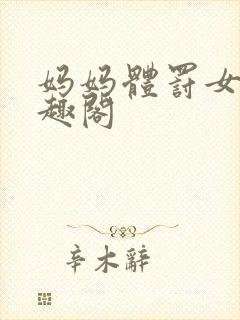 妈妈體罰女
趣閣
辛木辭